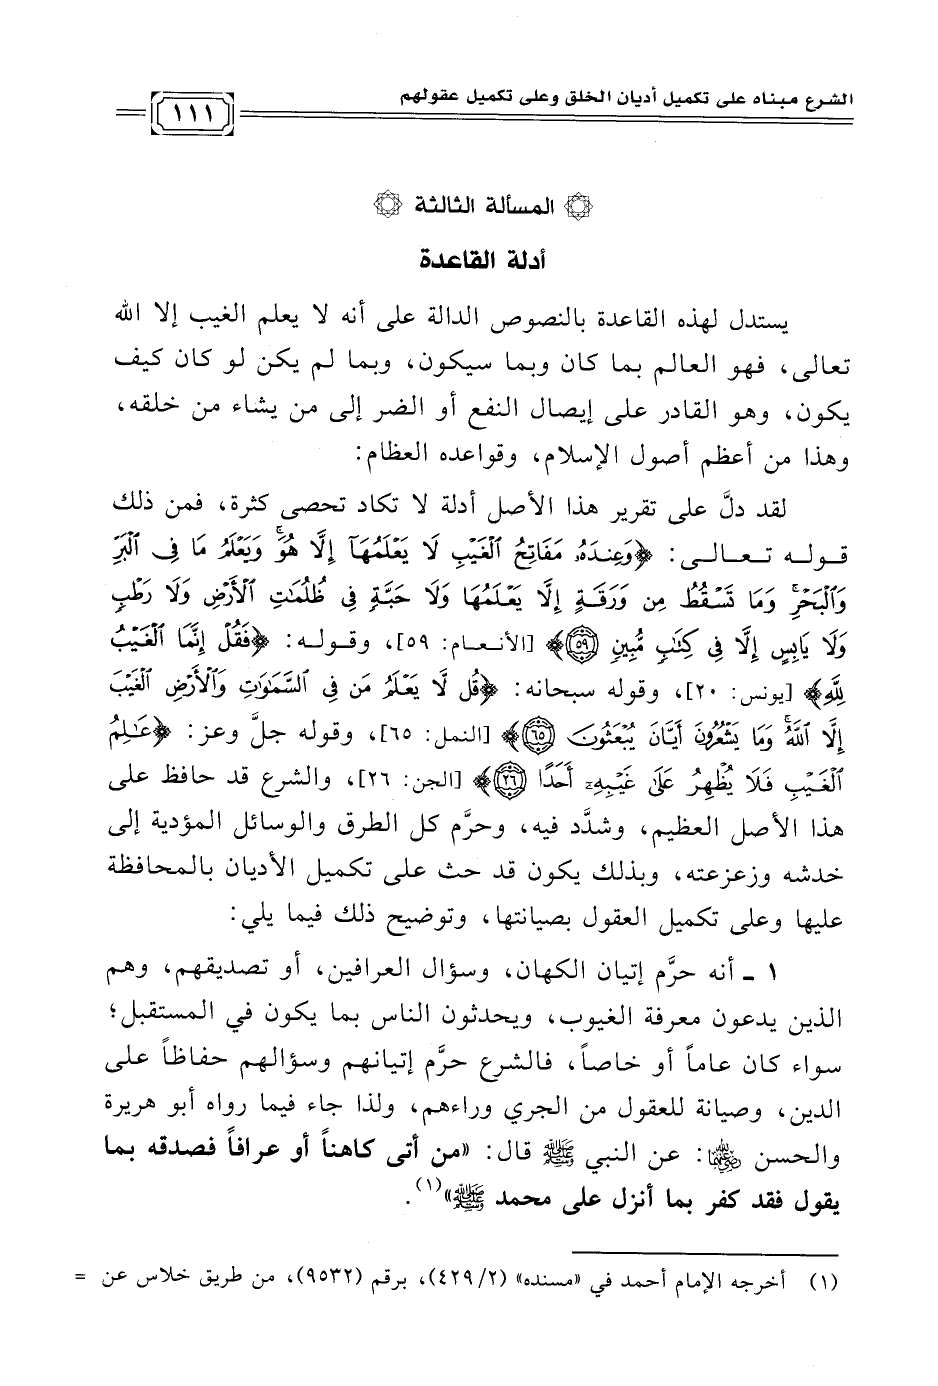 الشرع مبناه على تكميل أديان الخلق وعلى تكميل عقولهم
١١١
المسألة الثالثة
أدلة القاعدة
يستدل لهذه القاعدة بالنصوص الدالة على أنه لا يعلم الغيب إلا الله
تعالى، فهو العالم بما كان وبما سيكون، وبما لم يكن لو كان كيف
يكون، وهو القادر على إيصال النفع أو الضر إلى من يشاء من خلقه،
وهذا من أعظم أصول الإسلام، وقواعده العظام:
لقد دلَّ على تقرير هذا الأصل أدلة لا تكاد تحصى كثرة، فمن ذلك
قوله تعالى: ﴿وَعِندَهُۥ مَفَاتِحُ ٱلْغَيْبِ لَا يَعْلَمُهَآ إِلَّا هُوَۚ وَيَعْلَمُ مَا فِى ٱلْبَرِّ
وَٱلْبَحْرِۚ وَمَا تَسْقُطُ مِن وَرَقَةٍ إِلَّا يَعْلَمُهَا وَلَا حَبَّةٍ فِى ظُلُمَٰتِ ٱلْأَرْضِ وَلَا رَطْبٍ
وَلَا يَابِسٍ إِلَّا فِى كِتَٰبٍ مُّبِينٍ ٥٩﴾ [الأنعام: ٥٩]، وقوله: ﴿فَقُلْ إِنَّمَا ٱلْغَيْبُ
لِلَّهِ﴾ [يونس: ٢٠]، وقوله سبحانه: ﴿قُل لَّا يَعْلَمُ مَن فِى ٱلسَّمَٰوَٰتِ وَٱلْأَرْضِ ٱلْغَيْبَ
إِلَّا ٱللَّهُۚ وَمَا يَشْعُرُونَ أَيَّانَ يُبْعَثُونَ ٦٥﴾ [النمل: ٦٥]، وقوله جلَّ وعز: ﴿عَٰلِمُ
ٱلْغَيْبِ فَلَا يُظْهِرُ عَلَىٰ غَيْبِهِۦٓ أَحَدًا ٢٦﴾ [الجن: ٢٦]، والشرع قد حافظ على
هذا الأصل العظيم، وشدَّد فيه، وحرَّم كل الطرق والوسائل المؤدية إلى
خدشه وزعزعته، وبذلك يكون قد حث على تكميل الأديان بالمحافظة
عليها وعلى تكميل العقول بصيانتها، وتوضيح ذلك فيما يلي:
١ ـ أنه حرَّم إتيان الكهان، وسؤال العرافين، أو تصديقهم، وهم
الذين يدعون معرفة الغيوب، ويحدثون الناس بما يكون في المستقبل؛
سواء كان عاماً أو خاصاً، فالشرع حرَّم إتيانهم وسؤالهم حفاظاً على
الدين، وصيانة للعقول من الجري وراءهم، ولذا جاء فيما رواه أبو هريرة
والحسن رضي الله عنهما: عن النبي ﷺ قال: «من أتى كاهناً أو عرافاً فصدقه بما
يقول فقد كفر بما أنزل على محمد ﷺ»(١).
(١) أخرجه الإمام أحمد في «مسنده» (٤٢٩/٢)، برقم (٩٥٣٢)، من طريق خلاس عن =